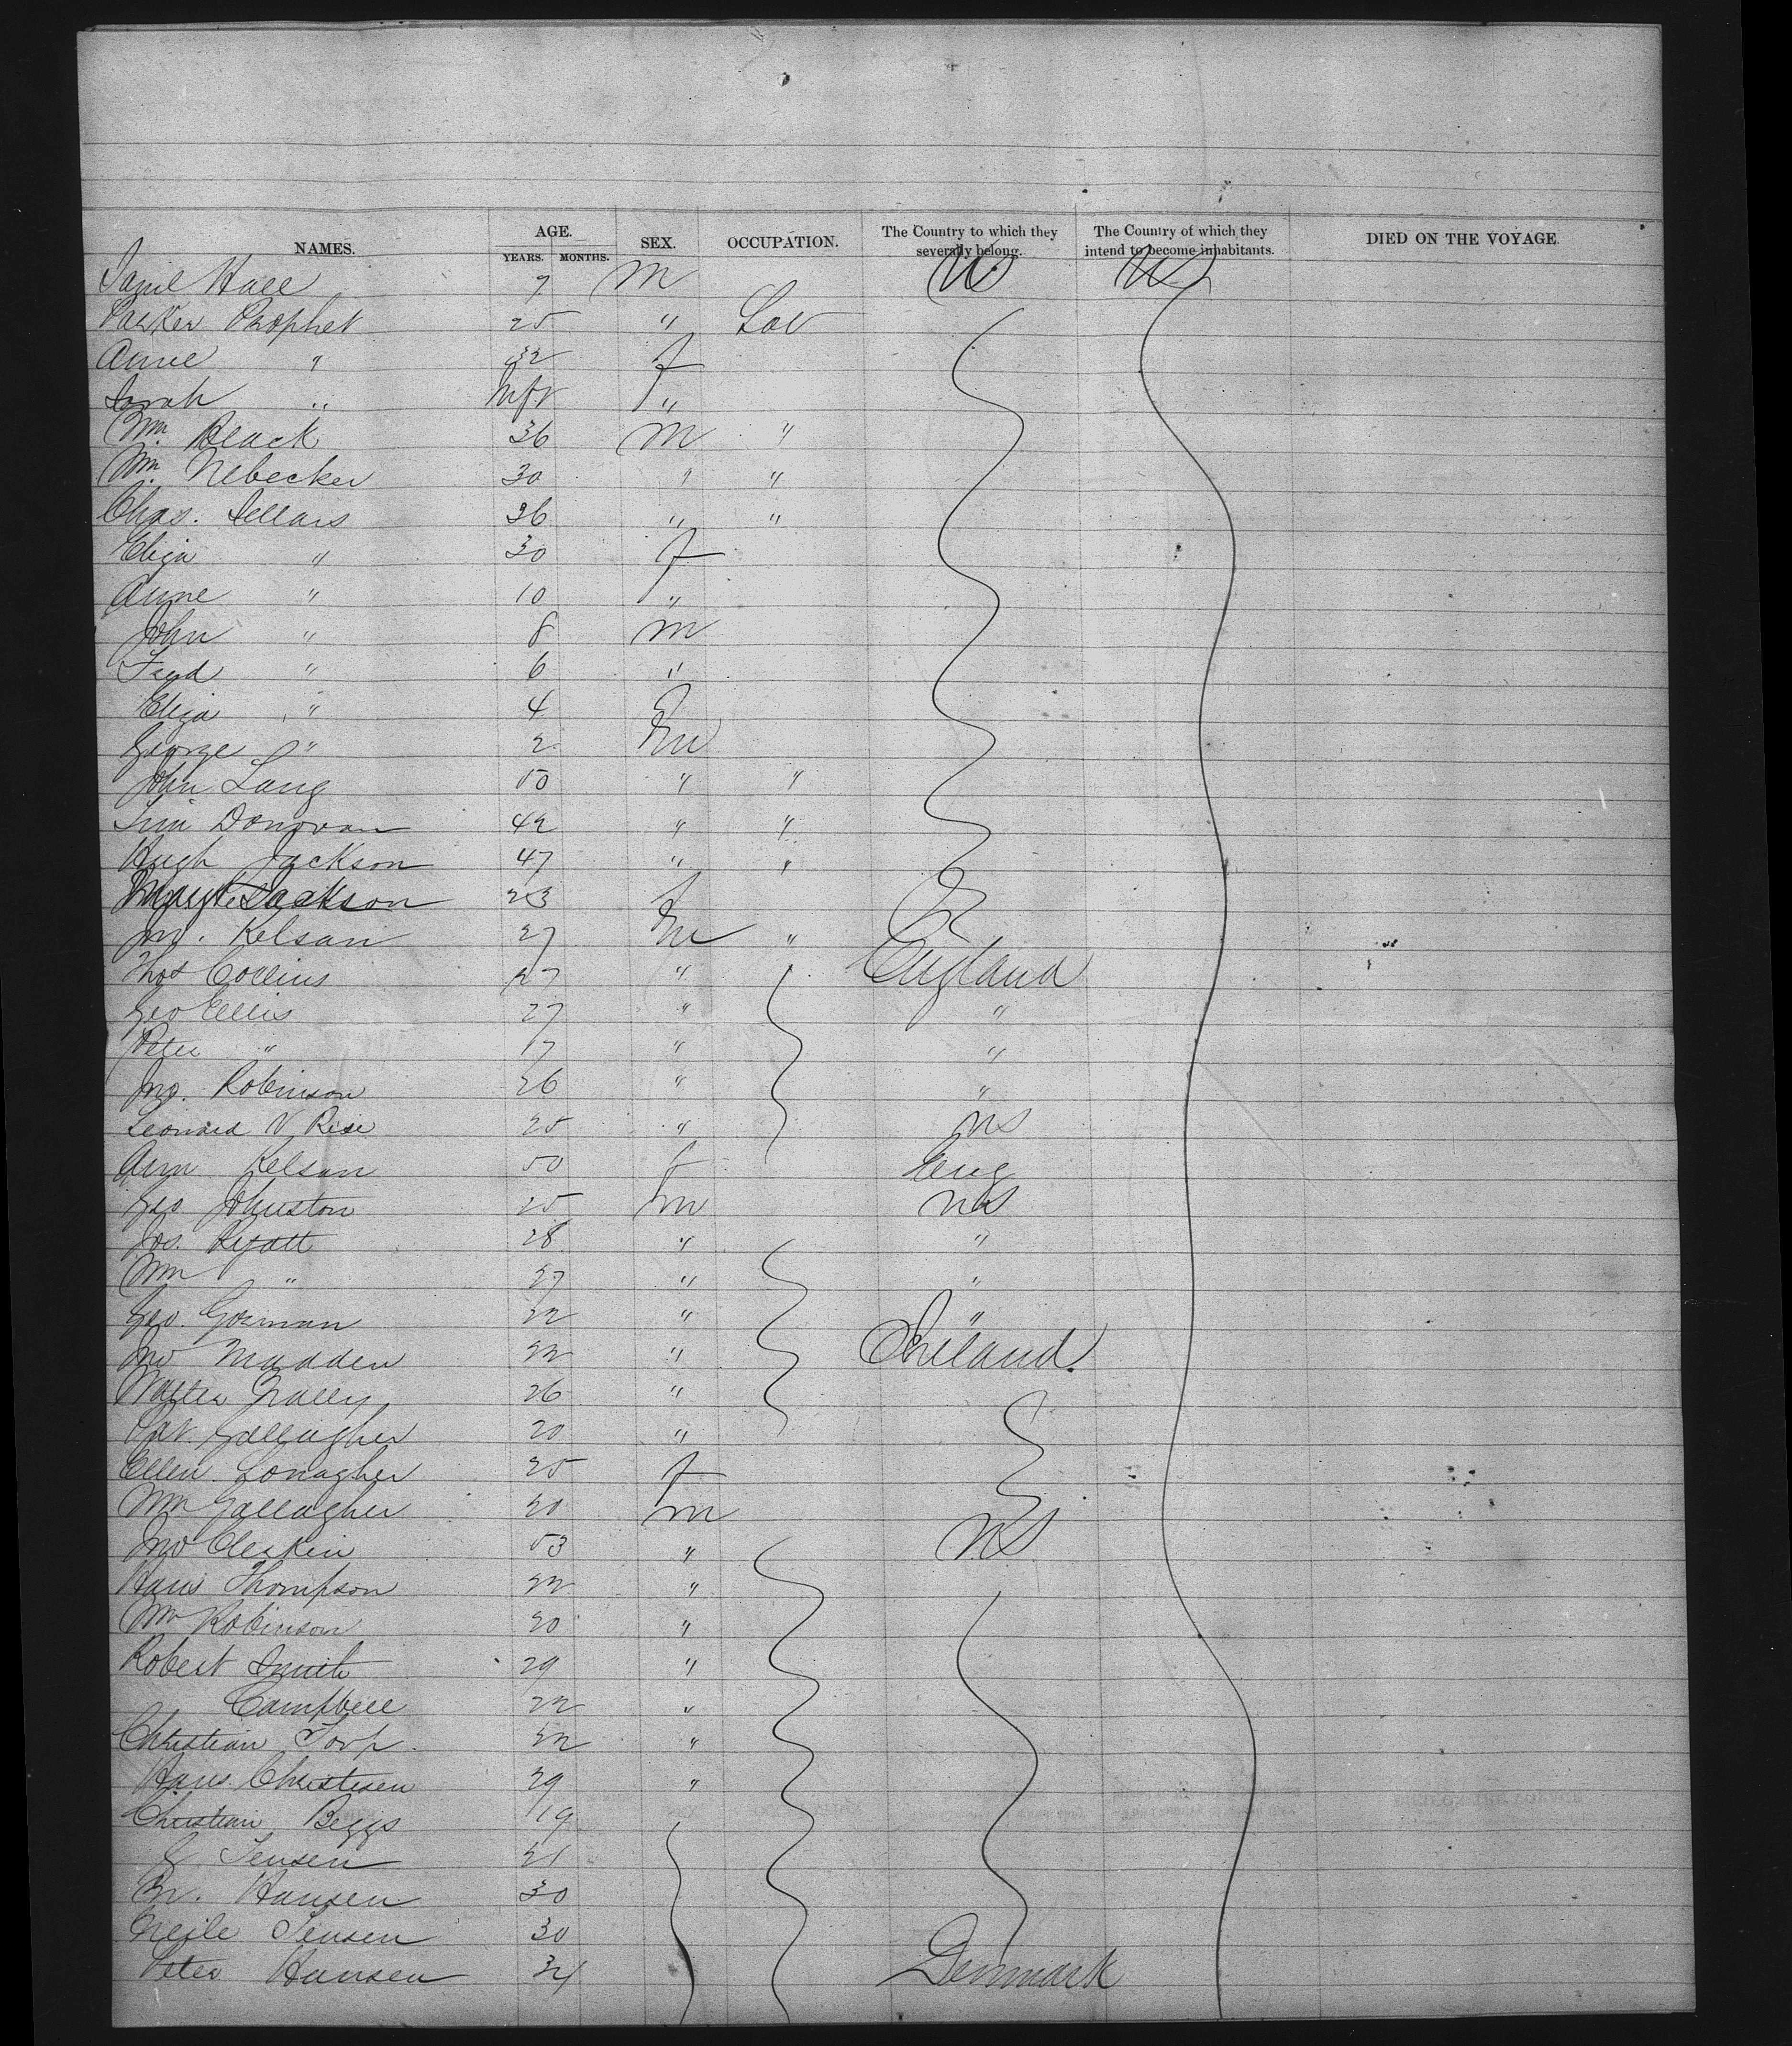 NAMES. AGE. YEARS. MONTHS. SEX. OCCUPATION. The Country to which they severally belong. The Country of which they intend to become inhabitants. DIED ON THE VOYAGE.
Hall 7 m US US
Parker Prophet 25 " Lab
Anne " 32 f
Sarah " Inft "
Wm. Black 36 m "
Wm. Nebecker 30 " "
Chas. Sellars 36 " "
Eliza " 30 f
Anne " 10 "
John " 8 m
Ferd " 6 "
Eliza " 4 f
George " 2 m
John Lang 50 " "
Tim Donovan 42 " "
Hugh Jackson 47 " "
Jackson 23 f
Jno. Kelsan 27 m "
Thos Collins 27 " England
Geo Ellis 27 " "
Peter " 17 " "
Jno. Robinson 26 " "
Leonard V. Rise 25 " US
Ann Kelsan 50 f Eng
Geo Johnston 25 m US
Jos. Ryatt 28 " "
Wm " 27 " "
Geo. Gorman 22 " "
Jno Madden 22 " Ireland
Walter 26 "
Pat. Gallagher 20 "
Ellen Gonagher 25 f
Wm Gallagher 20 m
Jno Cleskin 53 " US
Hans Thompson 22 "
Wm Robinson 20 "
Robert Smith 29 "
Campbell 22 "
Christian Torp. 22 "
Hans. Christesen 29 "
Christian Beggs 19
C. Jensen 21
M. Hansen 30
Neile Jensen 30
Peter Hansen 34 Denmark